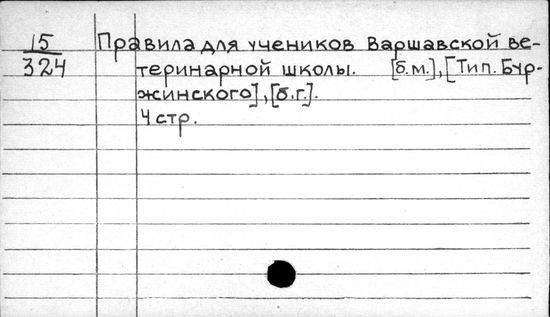 15 Правила для учеников Варшавской ве-
324 теринарной школы. [б.м.], [Тип. Бур-
жинского], [б.г.].
4 стр.